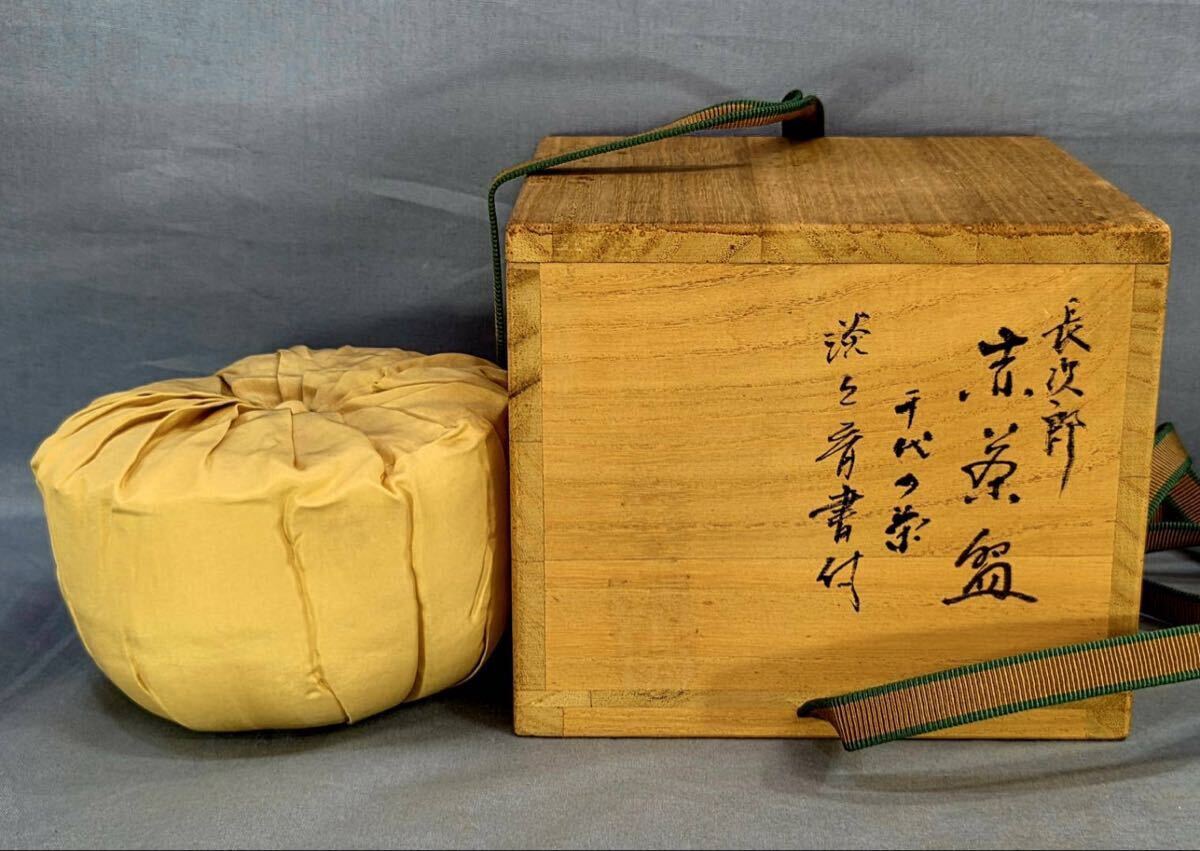 長次郎
赤茶盌
千代の菊
淡々斎書付